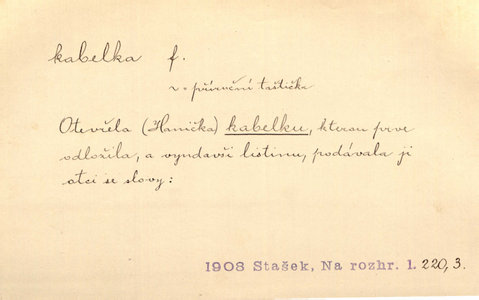 kabelka f.
příruční taštička
Otevřela (Hanička) kabelku, kterou prve
odložila, a vyndavši listinu, podávala ji
otci se slovy:
1908 Stašek, Na rozhr. 1. 220, 3.